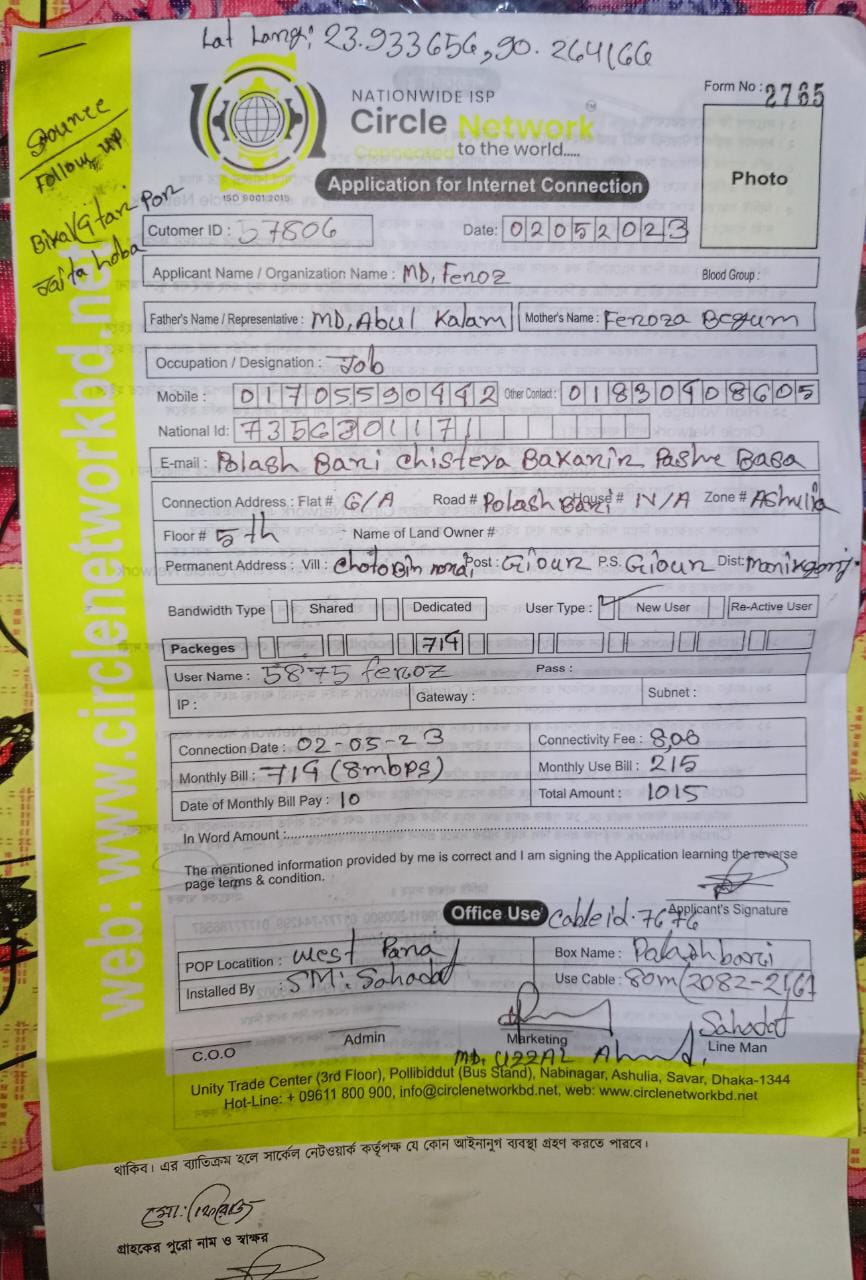 Lat Lang: 23.933656,90.264166
Form No : 2765
NATIONWIDE ISP
Circle Network
TM
Connected to the world.....
ISO 9001:2015
Application for Internet Connection
Photo
Source
Follow up
Bikal
Por
Jaita hoba
Cutomer ID : 57806 Date: 02052023
Applicant Name / Organization Name : MD, Feroz Blood Group :
Father's Name / Representative : MD, Abul Kalam Mother's Name : Feroza Begum
Occupation / Designation : Job
Mobile : 01705590442 Other Contact : 01830908605
National Id: 7356301171
E-mail : Polash Bari Chisteya Bakanir Pashe Basa
Connection Address : Flat # G/A Road # Polash Bari House # N/A Zone # Ashulia
Floor # 5th Name of Land Owner #
Permanent Address : Vill : Post : Giour P.S. Giour Dist: Manikgonj
Bandwidth Type Shared Dedicated User Type : New User Re-Active User
Packeges 714
User Name : 5875 feroz Pass :
IP : Gateway : Subnet :
Connection Date : 02-05-23 Connectivity Fee :
Monthly Bill : 719 (8mbps) Monthly Use Bill : 215
Date of Monthly Bill Pay : 10 Total Amount : 1015
In Word Amount :
The mentioned information provided by me is correct and I am signing the Application learning the reverse
page terms & condition.
Applicant's Signature
Office Use Cable id. 7676
POP Locatition : west Para Box Name : Palashbari
Installed By : SM: Sahadat Use Cable : 80m (2082-2161)
Sahadat
C.O.O Admin Marketing Line Man
MD, UZZAL Ahmed,
Unity Trade Center (3rd Floor), Pollibiddut (Bus Stand), Nabinagar, Ashulia, Savar, Dhaka-1344
Hot-Line: + 09611 800 900, info@circlenetworkbd.net, web: www.circlenetworkbd.net
web: www.circlenetworkbd.net
থাকিব। এর ব্যতিক্রম হলে সার্কেল নেটওয়ার্ক কর্তৃপক্ষ যে কোন আইনানুগ ব্যবস্থা গ্রহণ করতে পারবে।
মো: ফিরোজ
গ্রাহকের পুরো নাম ও স্বাক্ষর